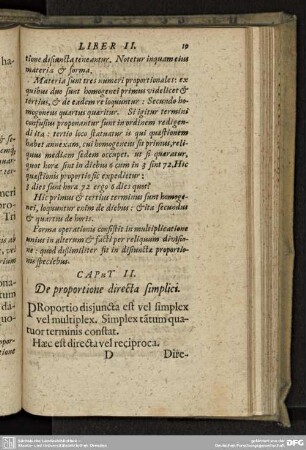 LIBER II. 19
tione disjuncta teneantur. Notetur inquam eius
materia & forma.
Materia sunt tres numeri proportionales: ex
quibus duo sunt homogenei primus videlicet &
tertius, & de eadem re loquuntur: Secundo ho-
mogeneus quartus quæritur. Si igitur termini
confusius proponantur sunt in ordinem redigen-
di ita: tertio loco statuatur is qui quæstionem
habet annexam, cui homogeneus fit primus, reli-
quus mediam sedem occupet. ut si quæratur,
quot horæ sint in diebus 6 cum in 3 sint 72. Hic
quæstionis proportio sic expedietur;
3 dies sunt horæ 72 ergo 6 dies quot?
Hic primus & tertius terminus sunt homoge-
nei, loquuntur enim de diebus: & ita secundus
& quartus de horis.
Forma operationis consistit in multiplicatione
unius in alterum & facti per reliquum divisio-
ne: quod dissimiliter fit in disjunctæ proportio-
nis speciebus.
CAPUT II.
De proportione directa simplici.
PRoportio disjuncta est vel simplex
vel multiplex. Simplex tãtum qua-
tuor terminis constat.
Hæc est directa vel reciproca.
D Dire-